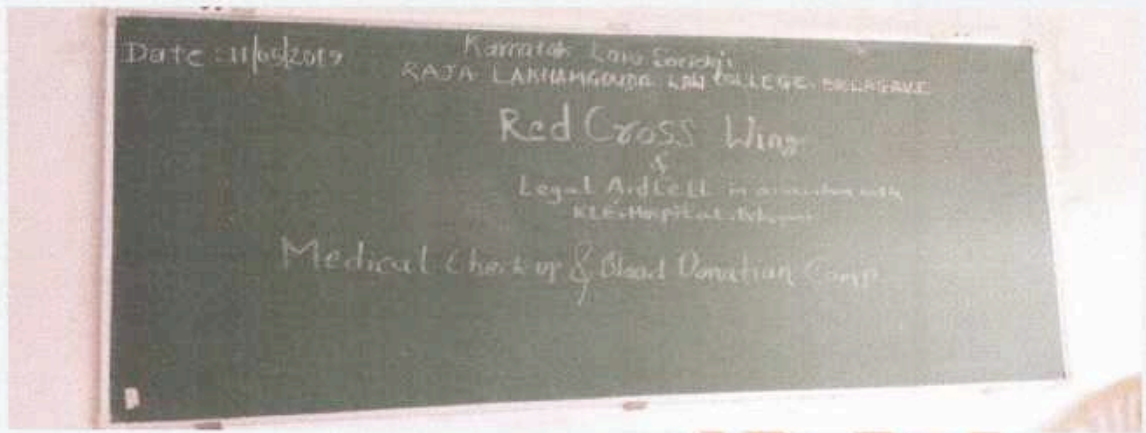 Date : 11/05/2019
Karnatak Law Society's
RAJA LAKHAMGOUDA LAW COLLEGE, BELAGAVI
Red Cross Wing
&
Legal Aid Cell in association with
KLE. Hospital
Medical Check up & Blood Donation Camp